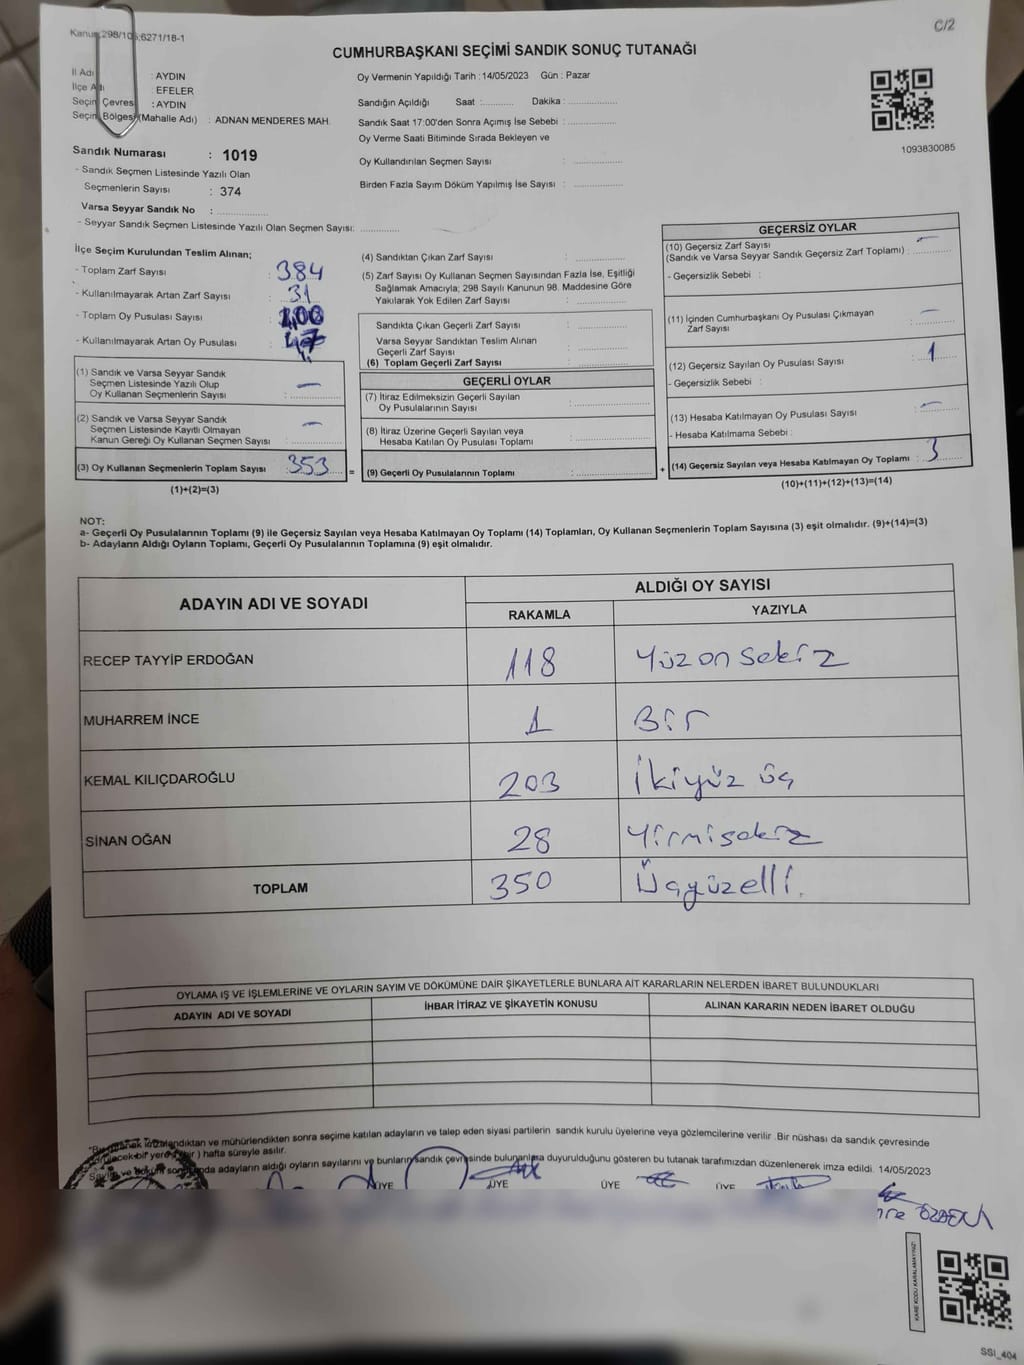 Kanun:298/105;6271/18-1
C/2
CUMHURBAŞKANI SEÇİMİ SANDIK SONUÇ TUTANAĞI
İl Adı : AYDIN
İlçe Adı : EFELER
Seçim Çevresi : AYDIN
Seçim Bölgesi (Mahalle Adı) : ADNAN MENDERES MAH.
Sandık Numarası : 1019
- Sandık Seçmen Listesinde Yazılı Olan
Seçmenlerin Sayısı : 374
Varsa Seyyar Sandık No :
- Seyyar Sandık Seçmen Listesinde Yazılı Olan Seçmen Sayısı:
Oy Vermenin Yapıldığı Tarih : 14/05/2023 Gün : Pazar
Sandığın Açıldığı Saat : Dakika :
Sandık Saat 17:00'den Sonra Açımış İse Sebebi :
Oy Verme Saati Bitiminde Sırada Bekleyen ve
Oy Kullandırılan Seçmen Sayısı :
Birden Fazla Sayım Döküm Yapılmış İse Sayısı :
1093830085
İlçe Seçim Kurulundan Teslim Alınan;
- Toplam Zarf Sayısı : 384
- Kullanılmayarak Artan Zarf Sayısı : 31
- Toplam Oy Pusulası Sayısı :
- Kullanılmayarak Artan Oy Pusulası : 47
(1) Sandık ve Varsa Seyyar Sandık
Seçmen Listesinde Yazılı Olup
Oy Kullanan Seçmenlerin Sayısı : —
(2) Sandık ve Varsa Seyyar Sandık
Seçmen Listesinde Kayıtlı Olmayan
Kanun Gereği Oy Kullanan Seçmen Sayısı : —
(3) Oy Kullanan Seçmenlerin Toplam Sayısı : 353 =
(1)+(2)=(3)
(4) Sandıktan Çıkan Zarf Sayısı :
(5) Zarf Sayısı Oy Kullanan Seçmen Sayısından Fazla İse, Eşitliği
Sağlamak Amacıyla; 298 Sayılı Kanunun 98. Maddesine Göre
Yakılarak Yok Edilen Zarf Sayısı :
Sandıkta Çıkan Geçerli Zarf Sayısı :
Varsa Seyyar Sandıktan Teslim Alınan
Geçerli Zarf Sayısı :
(6) Toplam Geçerli Zarf Sayısı :
GEÇERLİ OYLAR
(7) İtiraz Edilmeksizin Geçerli Sayılan
Oy Pusulalarının Sayısı :
(8) İtiraz Üzerine Geçerli Sayılan veya
Hesaba Katılan Oy Pusulası Toplamı :
(9) Geçerli Oy Pusulalarının Toplamı : +
GEÇERSİZ OYLAR
(10) Geçersiz Zarf Sayısı
(Sandık ve Varsa Seyyar Sandık Geçersiz Zarf Toplamı) : —
- Geçersizlik Sebebi :
(11) İçinden Cumhurbaşkanı Oy Pusulası Çıkmayan
Zarf Sayısı : —
(12) Geçersiz Sayılan Oy Pusulası Sayısı : 1
- Geçersizlik Sebebi :
(13) Hesaba Katılmayan Oy Pusulası Sayısı : —
- Hesaba Katılmama Sebebi :
(14) Geçersiz Sayılan veya Hesaba Katılmayan Oy Toplamı : 3
(10)+(11)+(12)+(13)=(14)
NOT:
a- Geçerli Oy Pusulalarının Toplamı (9) ile Geçersiz Sayılan veya Hesaba Katılmayan Oy Toplamı (14) Toplamları, Oy Kullanan Seçmenlerin Toplam Sayısına (3) eşit olmalıdır. (9)+(14)=(3)
b- Adayların Aldığı Oyların Toplamı, Geçerli Oy Pusulalarının Toplamına (9) eşit olmalıdır.
ADAYIN ADI VE SOYADI
ALDIĞI OY SAYISI
RAKAMLA YAZIYLA
RECEP TAYYİP ERDOĞAN 118 Yüzonsekiz
MUHARREM İNCE 1 Bir
KEMAL KILIÇDAROĞLU 203 İkiyüz üç
SİNAN OĞAN 28 Yirmisekiz
TOPLAM 350 Üçyüzelli.
OYLAMA İŞ VE İŞLEMLERİNE VE OYLARIN SAYIM VE DÖKÜMÜNE DAİR ŞİKAYETLERLE BUNLARA AİT KARARLARIN NELERDEN İBARET BULUNDUKLARI
ADAYIN ADI VE SOYADI İHBAR İTİRAZ VE ŞİKAYETİN KONUSU ALINAN KARARIN NEDEN İBARET OLDUĞU
imzalandıktan ve mühürlendikten sonra seçime katılan adayların ve talep eden siyasi partilerin sandık kurulu üyelerine veya gözlemcilerine verilir .Bir nüshası da sandık çevresinde
bir yere ) hafta süreyle asılır.
adayların aldığı oyların sayılarını ve bunların sandık çevresinde bulunanlara duyurulduğunu gösteren bu tutanak tarafımızdan düzenlenerek imza edildi. 14/05/2023
ÜYE ÜYE ÜYE ÜYE
ÖZDEN
KARE KODU KARALAMAYINIZ!
SSI_404